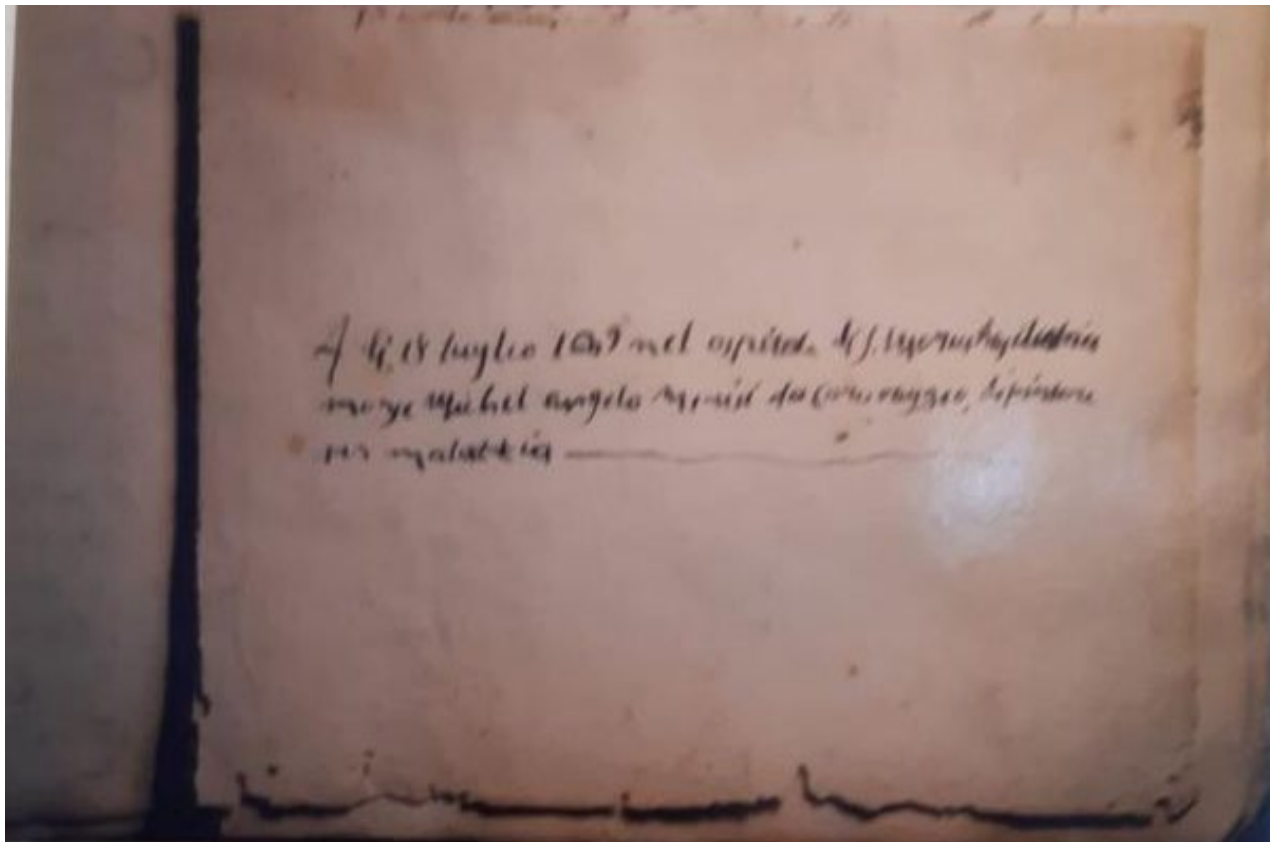 A di 18 luglio 1609 nel ospitale di S. Maria Ausiliatrice
morse Michel angelo Merisi da Caravaggio, dipintore
per malattia